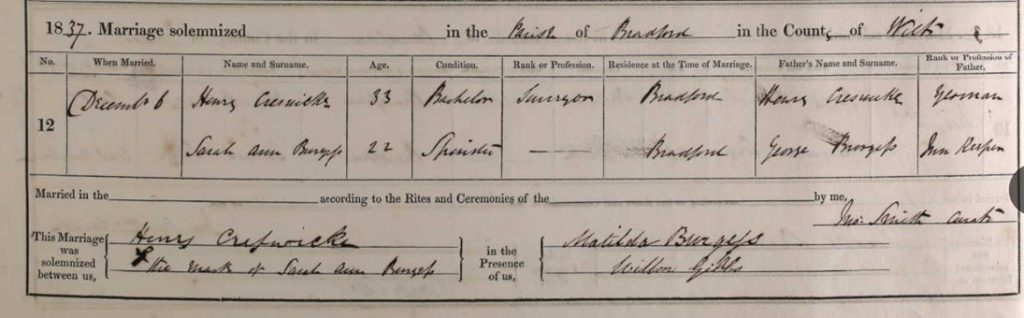 1837. Marriage solemnized in the Parish of Bradford in the County of Wilts
No. When Married. Name and Surname. Age. Condition. Rank or Profession. Residence at the Time of Marriage. Father's Name and Surname. Rank or Profession of Father.
12 December 6 Henry Creswicke 33 Bachelor Surgeon Bradford Henry Creswicke Yeoman
Sarah Ann Burgess 22 Spinster — — Bradford George Burgess Inn Keeper
Married in the according to the Rites and Ceremonies of the by me,
Jno. Smith Curate
This Marriage was solemnized between us,
Henry Creswicke
X the mark of Sarah Ann Burgess
in the Presence of us,
Matilda Burgess
Gibbs